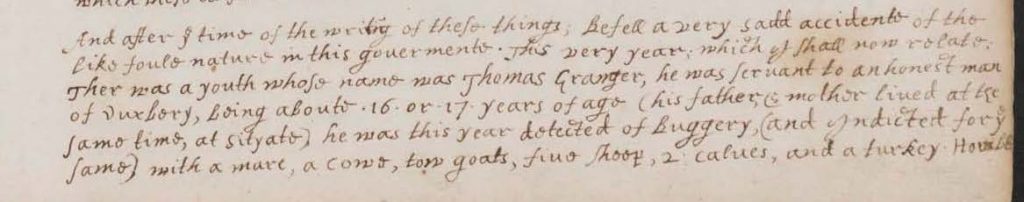 And after yͤ time of the writīg of these things; befell a very sadd accidente of the
like foule nature in this govermente. This very year; which I shall now relate.
Ther was a youth whose name was Thomas Granger, he was servant to an honest man
of Duxbery, being aboute .16. or .17. years of age (his father, & mother lived at the
same time, at Sityate) he was this year detected of Buggery, (and Indicted for yͤ
same) with a mare, a cowe, tow goats, five sheep, 2. calves, and a turkey.